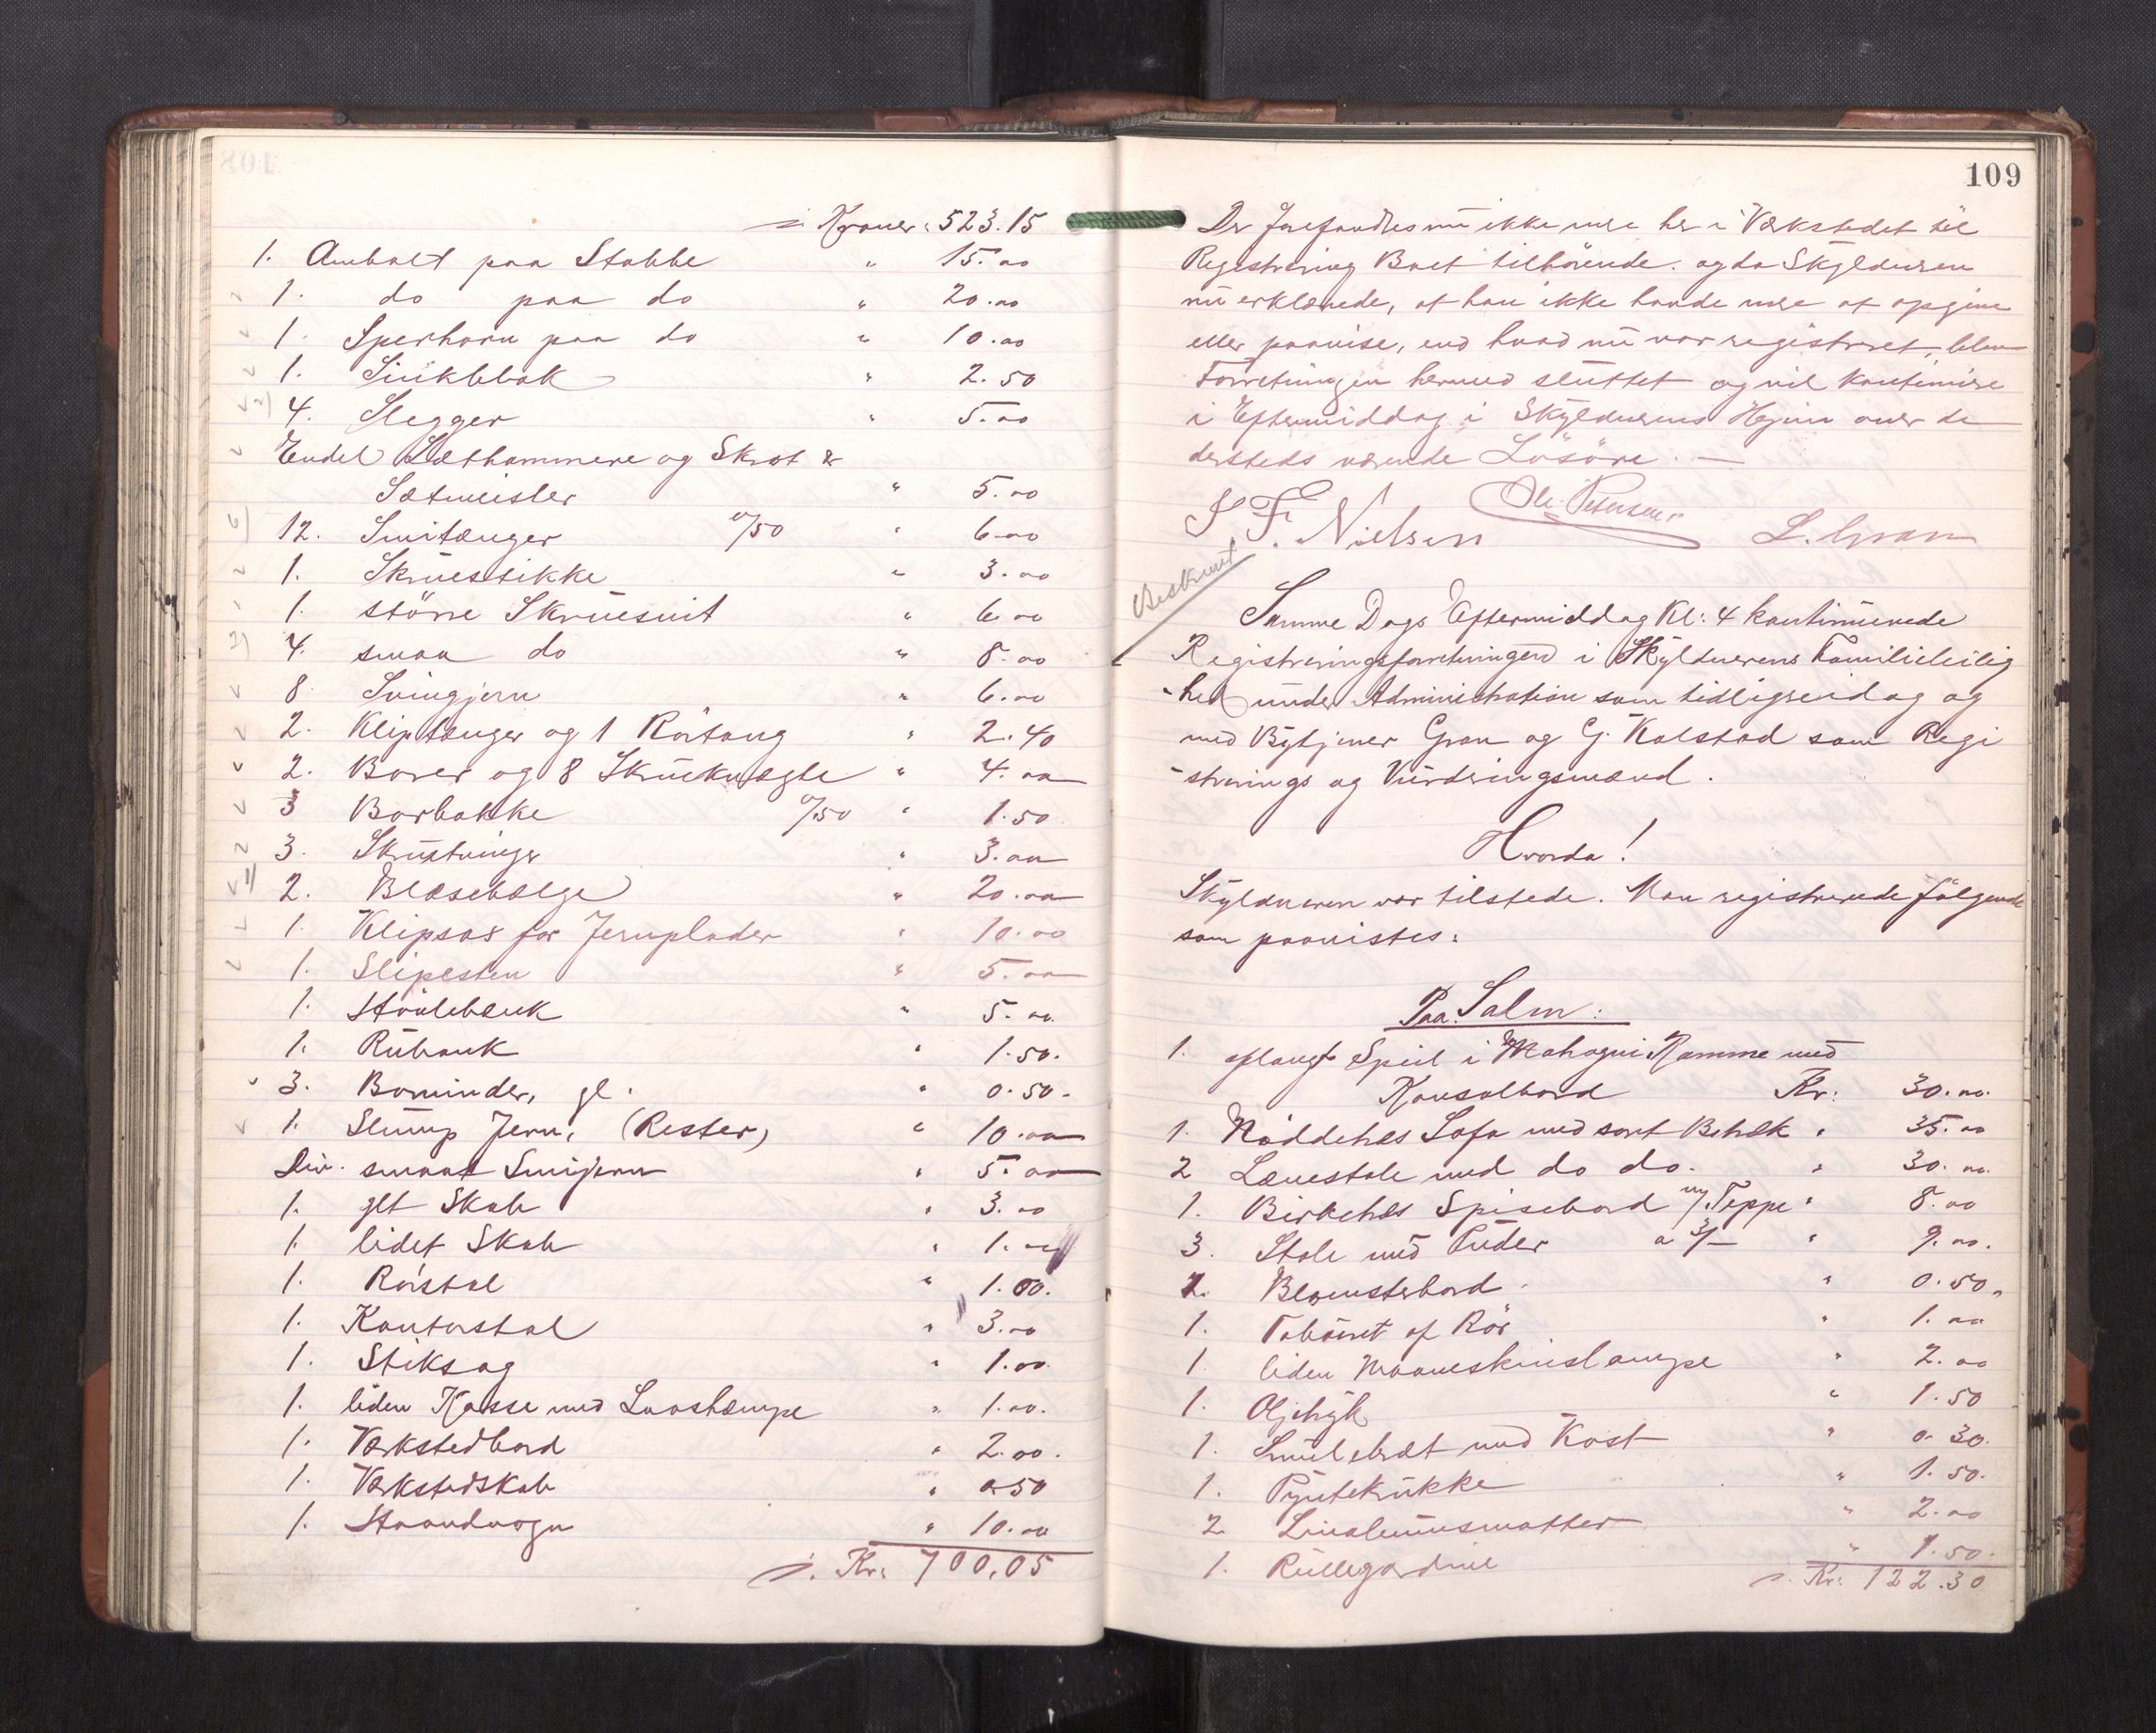 ÷ Kroner: 523.15
1. Ambolt paa Stabbe " 15.00
1. do paa do " 20.00
1. Sperhorn paa do " 10.00
1. Sinkblok " 2.50
4. Slegger " 5.00
Endel Sæthammere og Skrot &
Sætmeisler " 5.00
12. Smitænger a/50 " 6.00
1. Skruestikke " 3.00
1. större Skruesnit " 6.00
4. smaa do " 8.00
8. Svingjern " 6.00
2. Kliptænger og 1 Rörtang " 2.40
2. Borer og 8 Skruenøgle " 4.00
3 Borbakke a/50 " 1.50
3. Skrutvinger " 3.00
2. Blæsebælge " 20.00
1. Klipsax for Jernplader " 10.00
1. Slipesten " 5.00
1. Hövlebænk " 5.00
1. Rubank " 1.50.
3. Bominder, gl. " 0.50.
1. Slump Jern, (Rester) " 10.00
Div. smaat Smijern " 5.00
1. glt Skab " 3.00
1. lidet Skab " 1.00
1. Rörstol " 1.00.
1. Kontorstol " 3.00
1. Stiksag " 1.00
1. liden Kasse med Lovslampe " 1.00.
1. Værkstedbord " 2.00.
1. Værkstedskab " 0.50
1. Haandvogn " 10.00
÷ Kr: 700,05
109
Der forefandtes nu ikke mere her i Værkstedet til
Registrering Boet tilhörende. og da Skyldneren
nu erklærede, at han ikke havde mere at opgive
eller paavise, end hvad nu var registreret, blev
Forretningen hermed sluttet og vil kontinuere
i Eftermiddag i Skyldnerens Hjem over de
dersteds værende Lösöre. —
J F. Nielsen Ole Petersen L. Gran
Beskrevet
Samme Dags Eftermiddag Kl: 4 kontinuerede
Registreringsforretningen i Skyldnerens Familieleilig
-hed under Administration som tidligere idag og
med Bytjener Gran og G. Kolstad som Regi
-strerings og Vurderingsmænd.
Hvorda!
Skyldneren var tilstede. Man registrerede fölgende
som paavistes:
Paa Salen:
1. aflangt Speil i Mahogni Ramme med
Konsolbord Kr: 30.00.
1. Nöddetræs Sofa med sort Betræk " 35.00
2 Lænestole med do do. " 30.00.
1. Birketræs Spisebord m/ Teppe " 8.00
3. Stole med Puder a 3/- " 9.00.
1. Blomsterbord. " 0.50.
1. Taboret af Rör " 1.00
1. liden Maaneskinslampe " 2.00
1. Oljetryk " 1.50
1. Smulebræt med Kost " 0.30.
1. Pyntekrukke " 1.50.
2. Linoleumsmatter " 2.00
1. Rullegardine " 1.50.
÷ Kr: 122.30